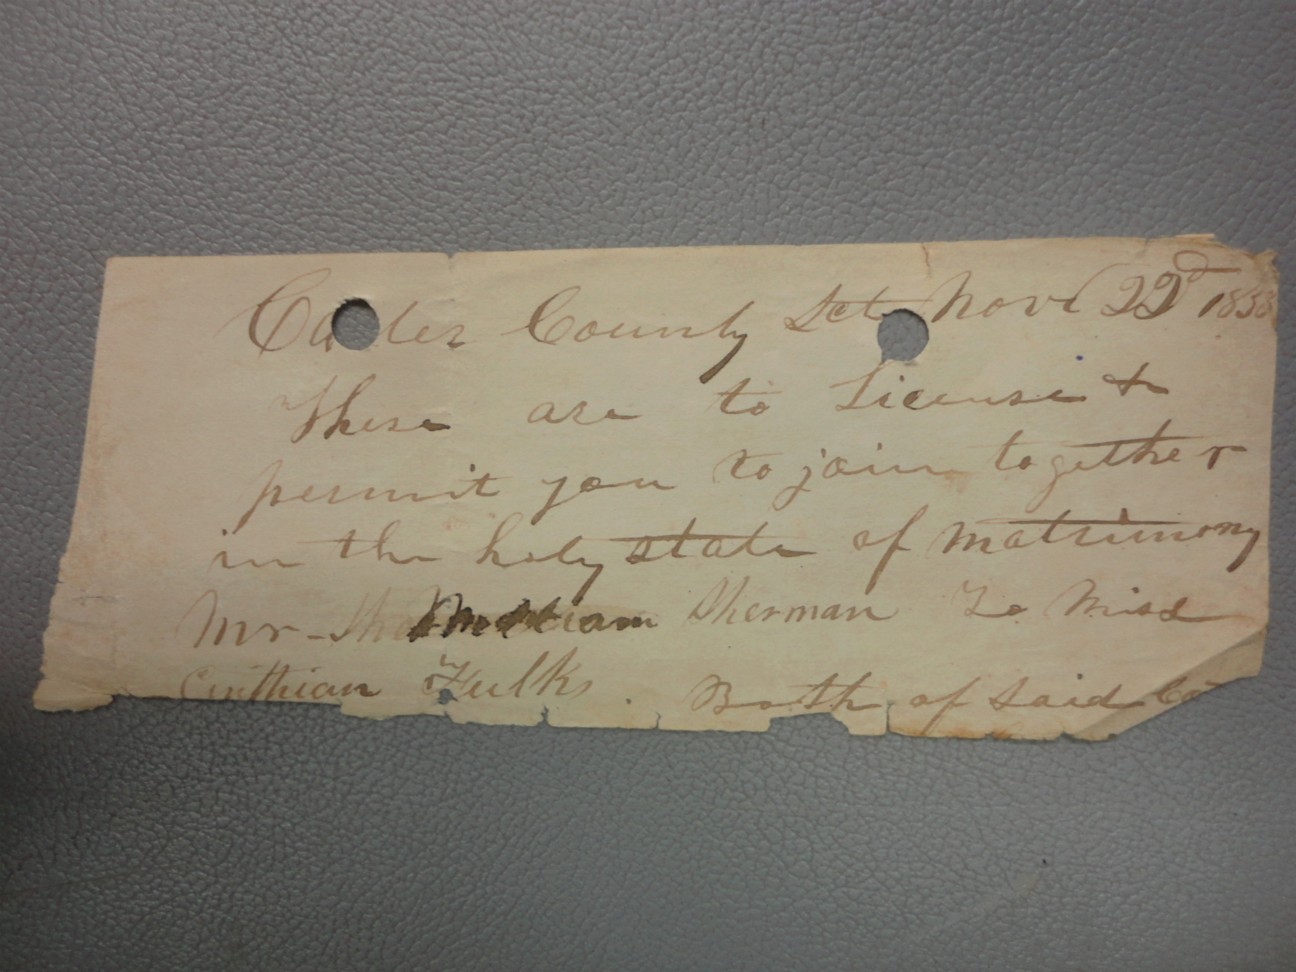 Carter County Sct Novr 22d 1853
These are to License &
permit you to join together
in the holy state of matrimony
Mr Sherman To Miss
Cinthian Fulks. Both of said Co